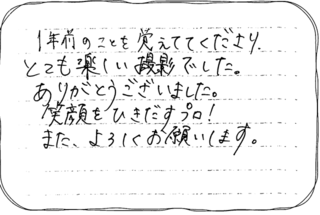 1年前のことを覚えててくださり、
とても楽しい撮影でした。
ありがとうございました。
笑顔をひきだすプロ!
また、よろしくお願いします。